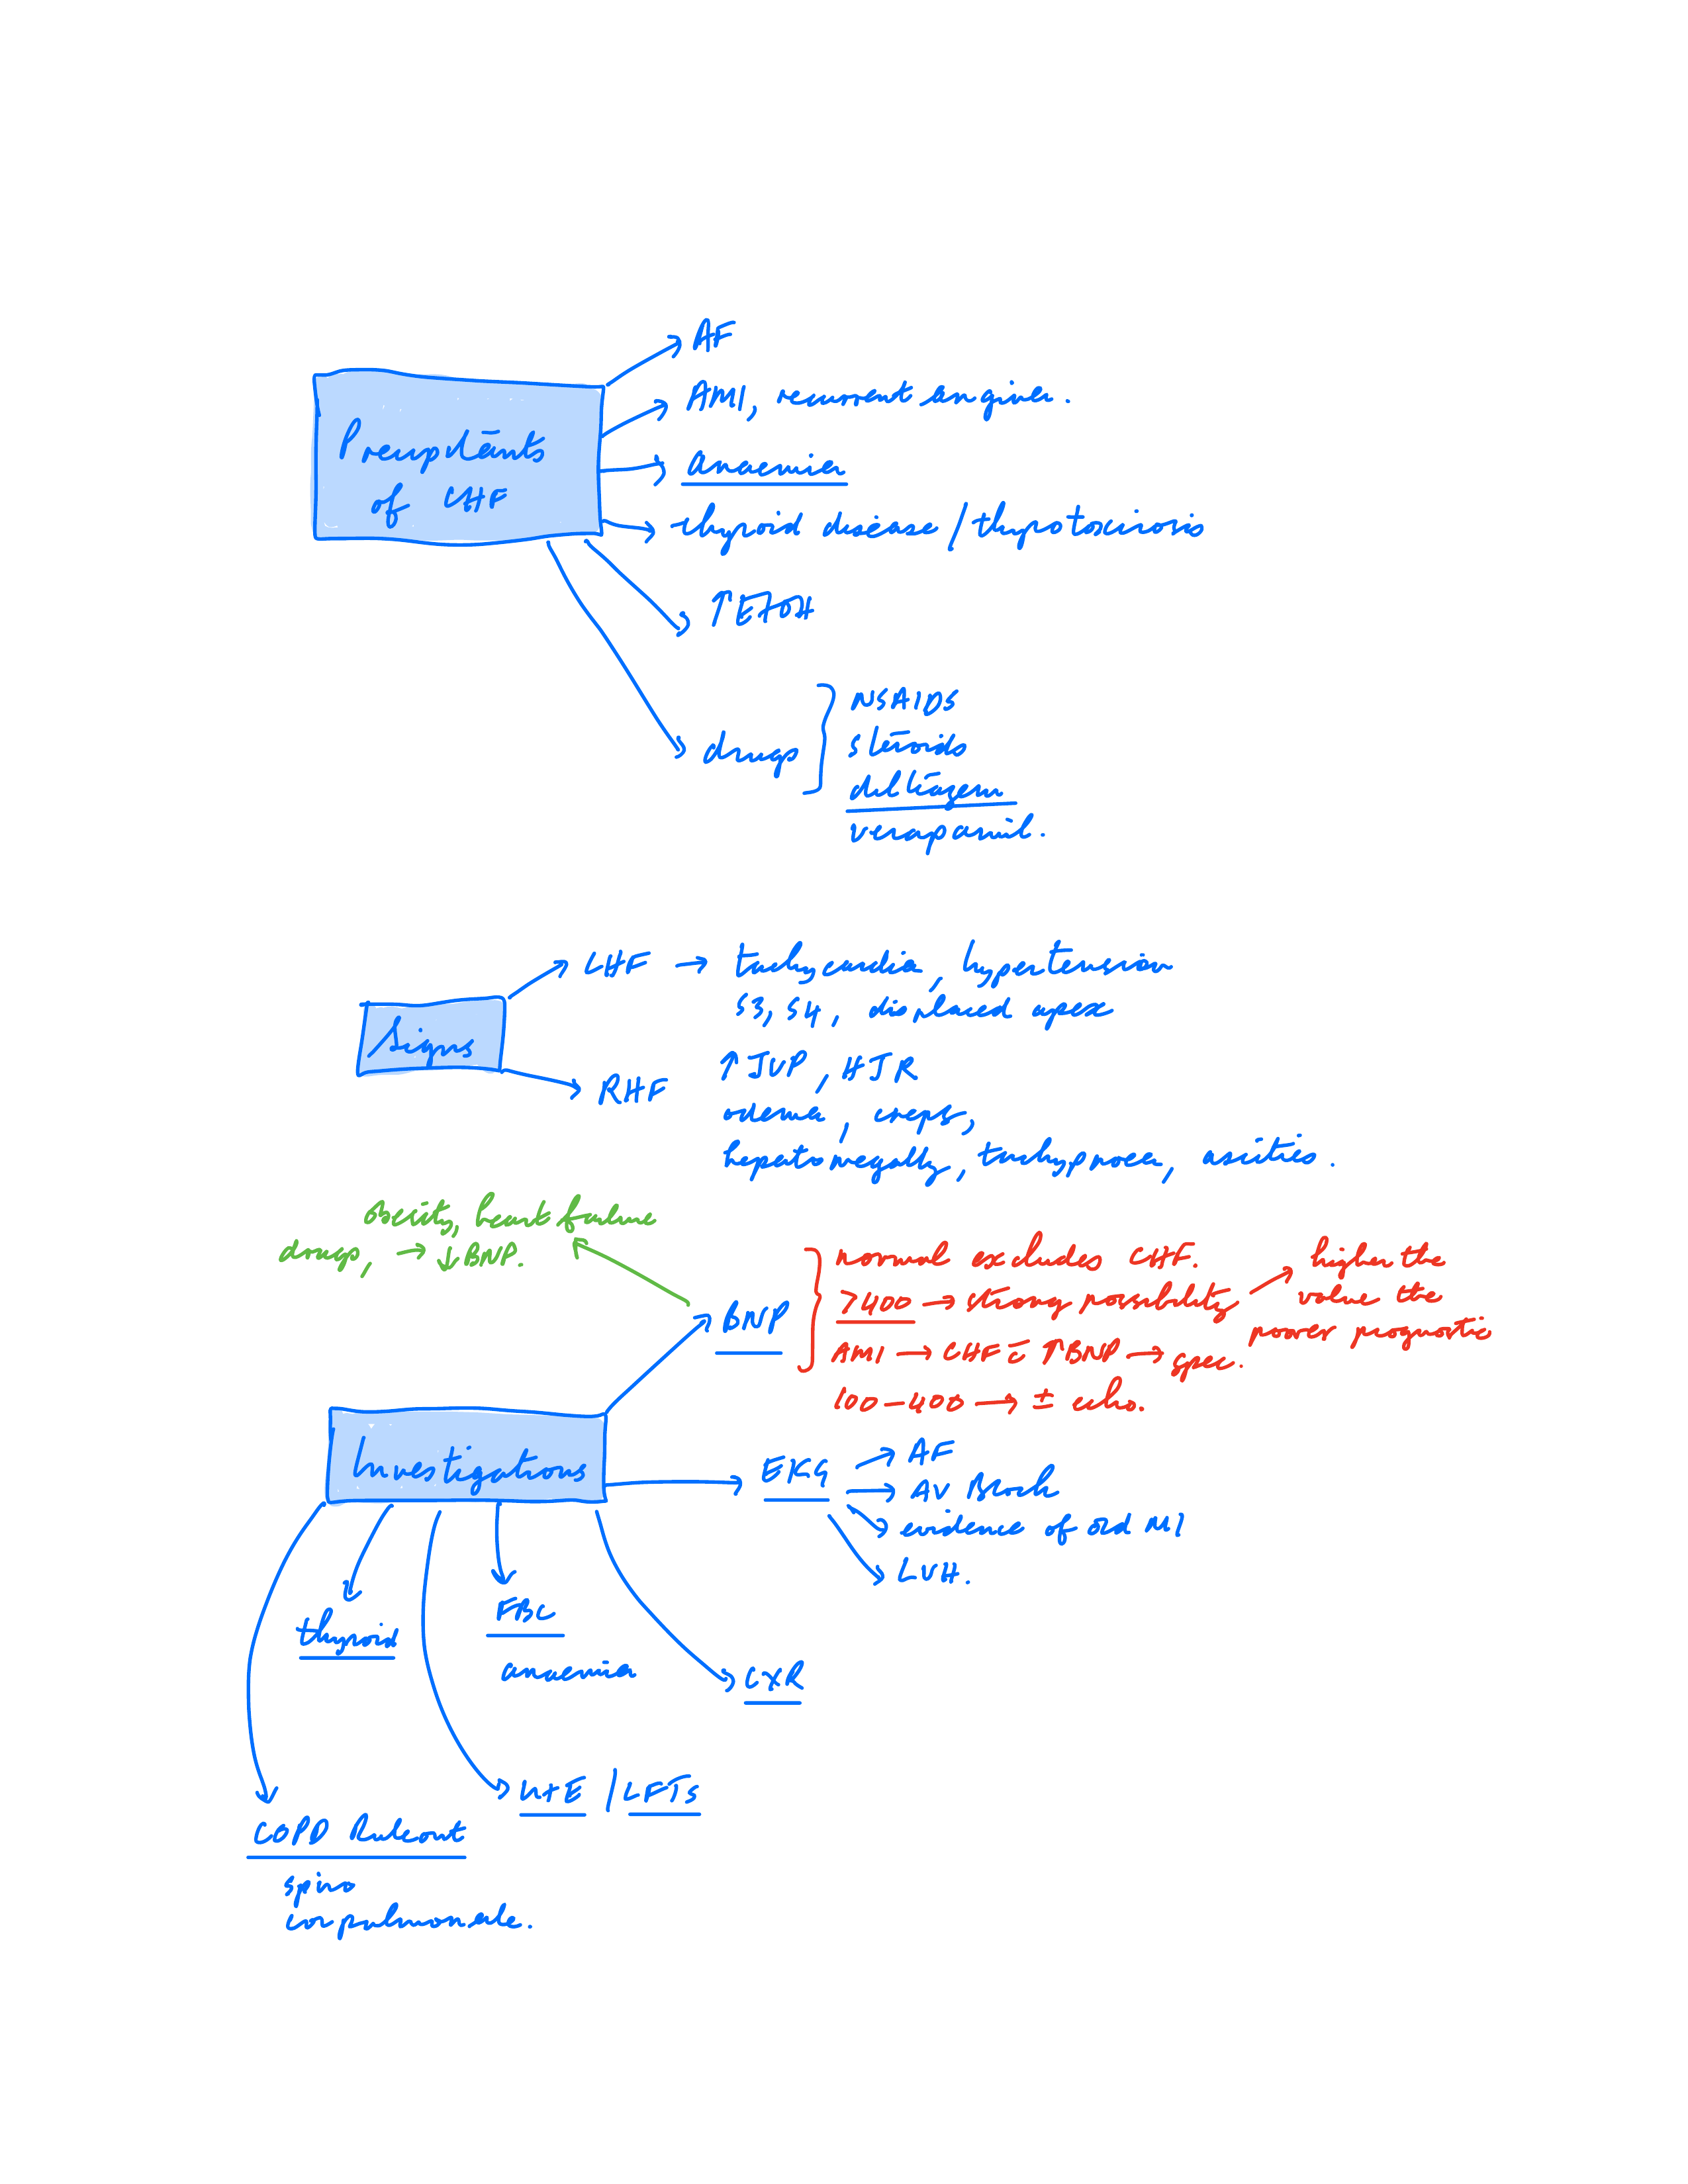 Precipitants
of CHF
AF
AMI, recurrent angina.
anaemia
thyroid disease / thyrotoxicosis
↑ETOH
drugs
NSAIDS
steroids
diltiazem
verapamil.
Signs
LHF → tachycardia, hypertension
S3, S4, displaced apex
RHF
↑JVP, HJR
odema, creps,
hepatomegally, tachypnoea, ascities.
obesity, heart failure
drugs, → ↓BNP.
BNP
normal excludes CHF.
>400 → strong possibility
higher the
value the
poorer prognostic
AMI → CHF c̄ ↑BNP → spec.
100-400 → ± echo.
Investigations
EKG
AF
AV Block
evidence of old MI
LVH.
thyroid
FBC
anaemia
CXR
U+E / LFTs
COPD Ruleout
spiro
corpulmonale.